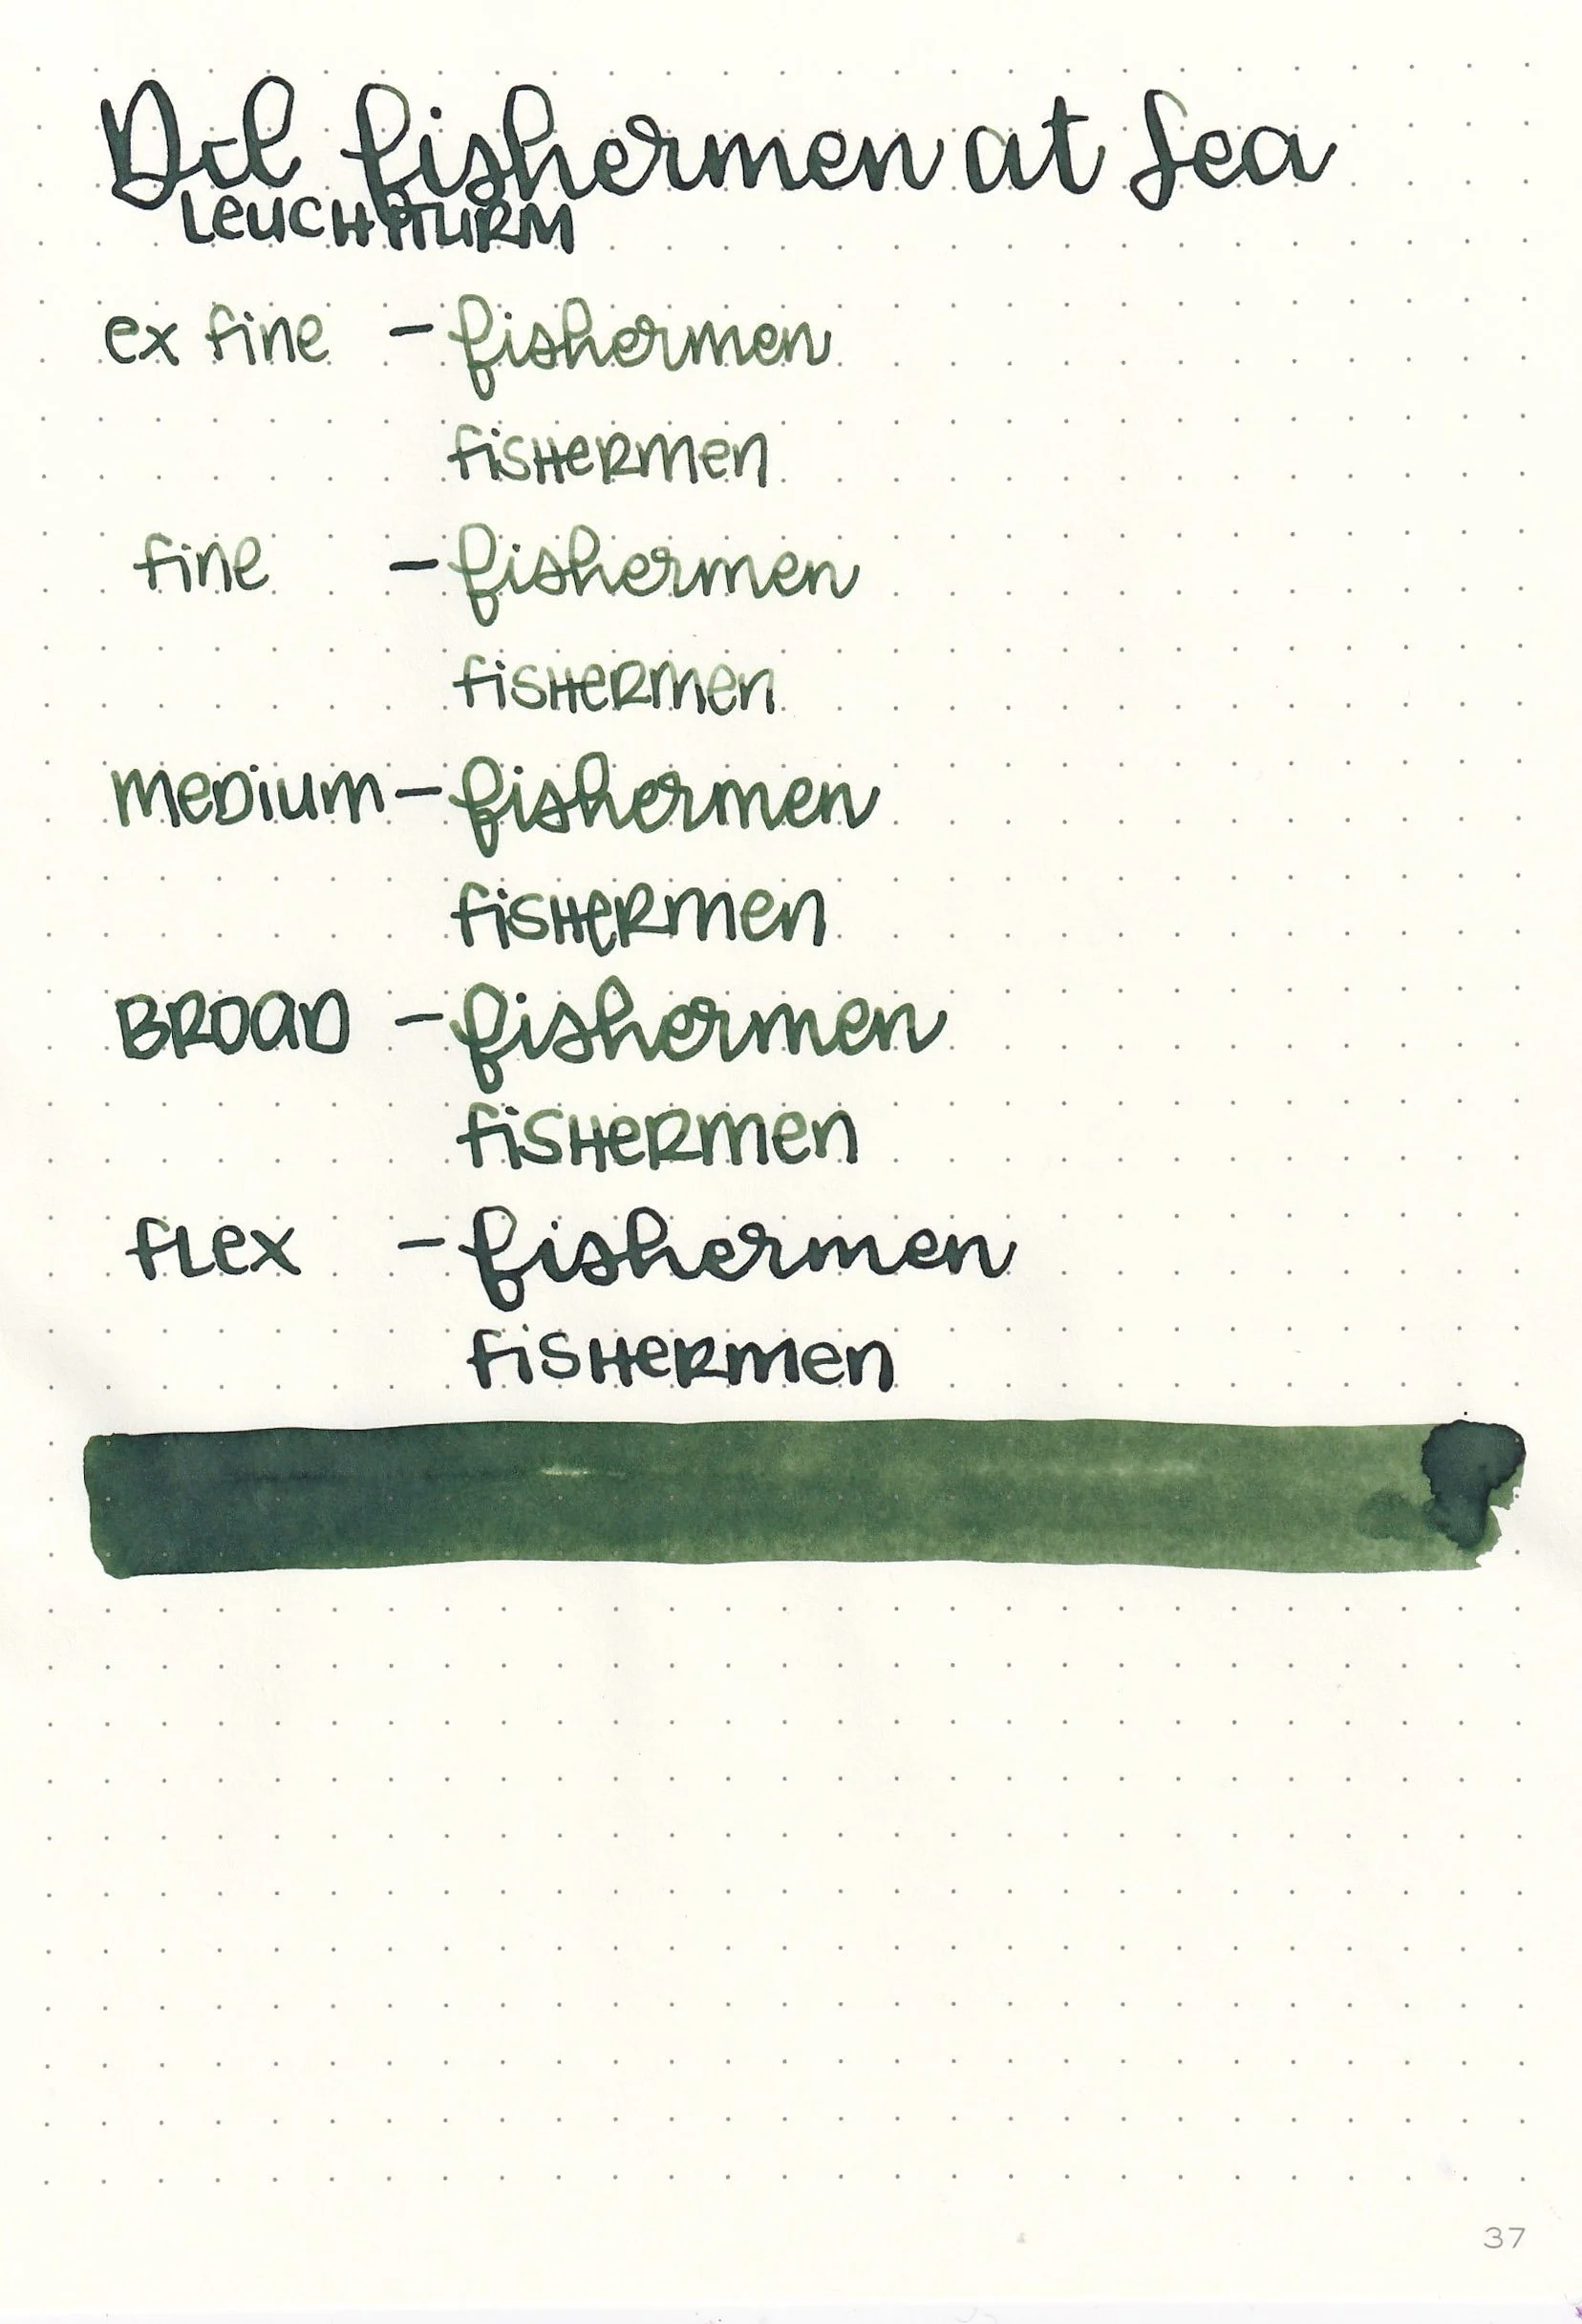 Dcl fishermen at Sea
Leuchtturm
ex fine - fishermen
fisHeRmen
fine - fishermen
fisHeRmen
meDium - fishermen
fisHeRmen
BROaD - fishermen
fisHeRmen
fLex - fishermen
fisHeRmen
37